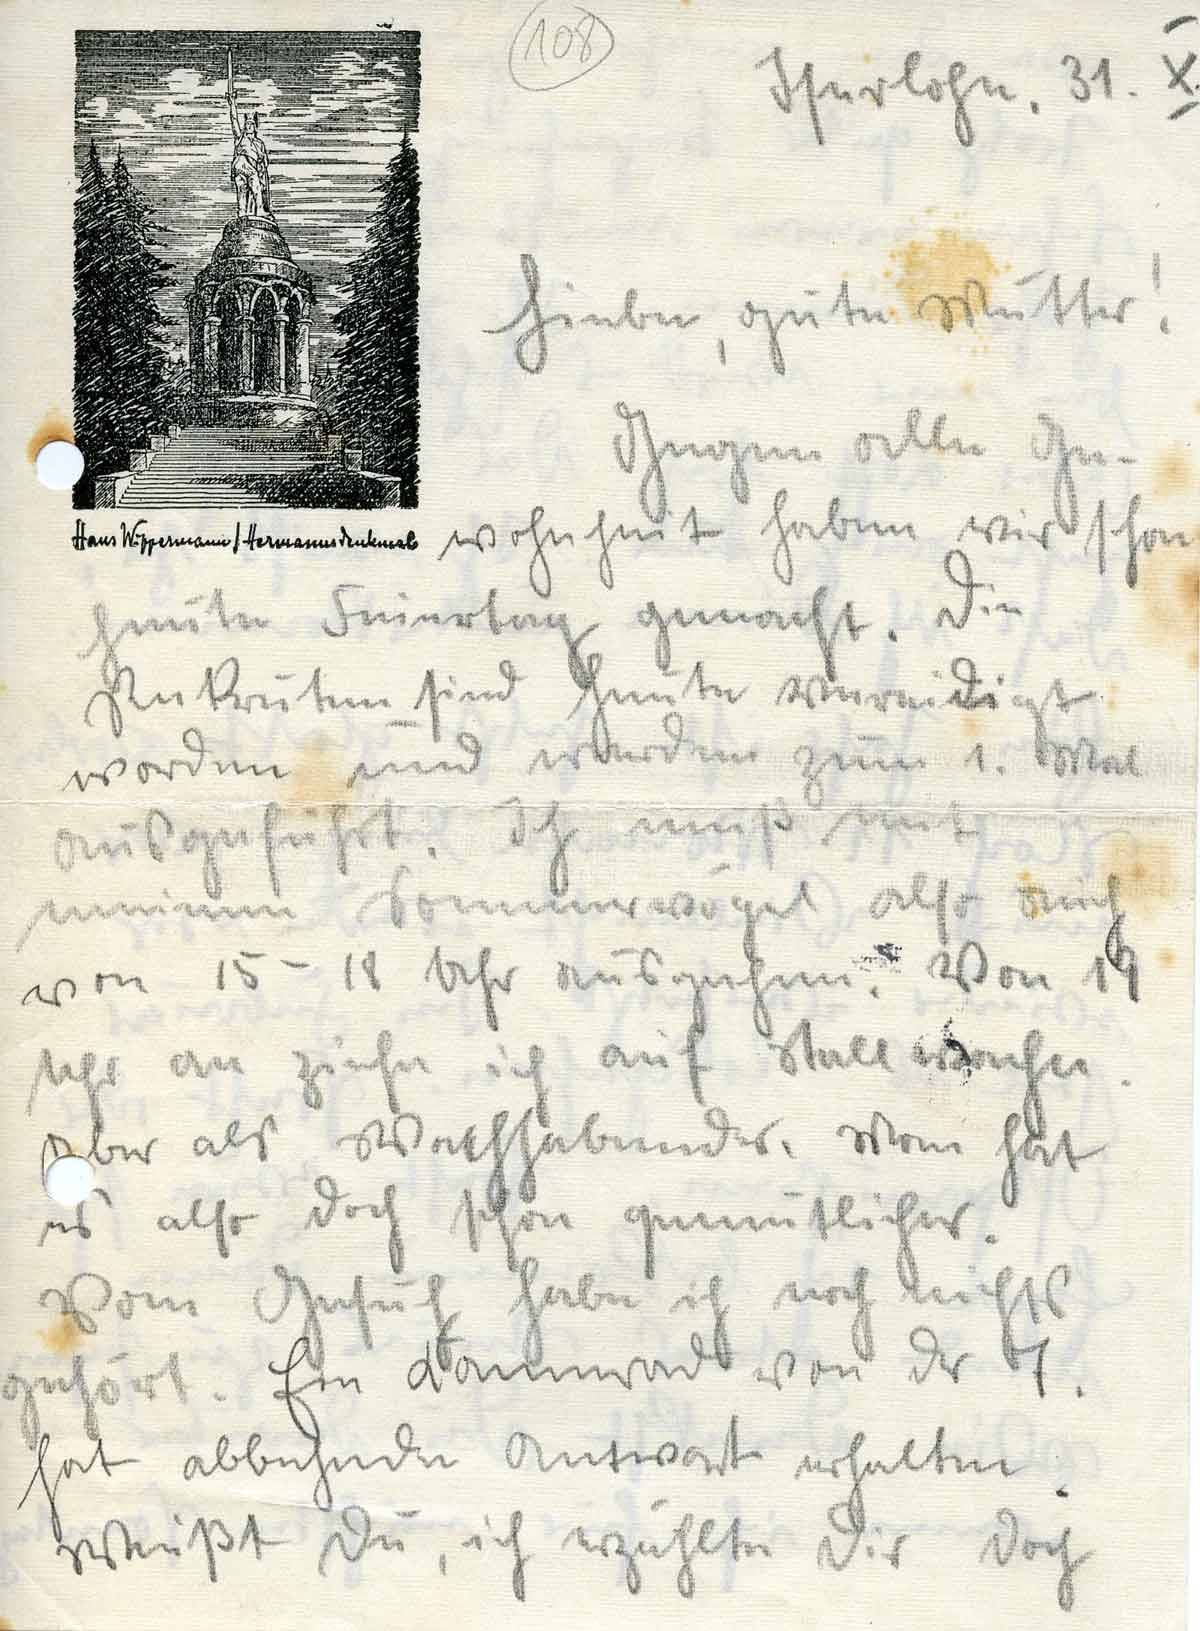 108
Iserlohn, 31. X.
Liebe, gute Mutter!
Gegen alle Ge-
Hans Wippermann / Hermannsdenkmal
wohnheit haben wir schon
heute Feiertag gemacht. Die
Rekruten sind heute vereidigt
worden und werden zum 1. Mal
ausgeführt. Ich muß mit
meinem Sommervögel also auch
von 15 - 18 Uhr ausgehen. Von 19
Uhr an ziehe ich auf Stallwache.
Aber als Wachhabender. Man hat
es also doch schon gemütlicher.
Vom Gesuch habe ich noch nichts
gehört. Ein Kamerad von der 7.
hat ablehnende Antwort erhalten.
Weißt Du, ich erzählte Dir doch